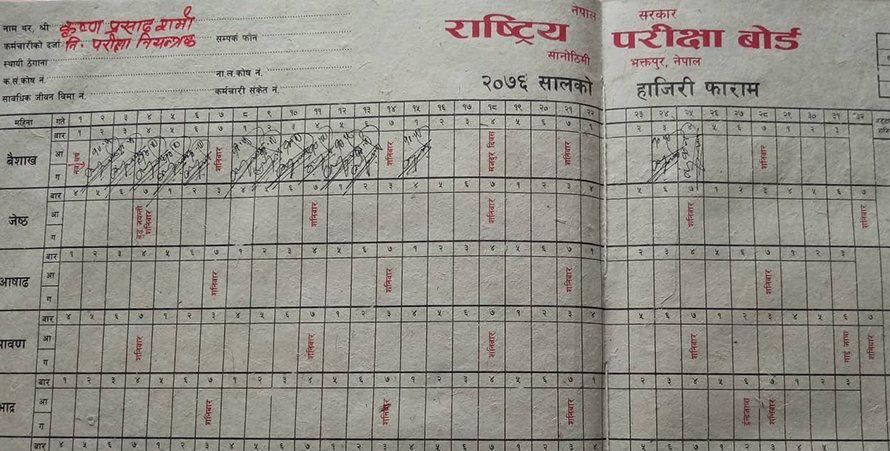 नेपाल सरकार
राष्ट्रिय परीक्षा बोर्ड
सानोठिमी भक्तपुर, नेपाल
२०७६ सालको हाजिरी फाराम
नाम थर, श्री कृष्ण प्रसाद शर्मा
कर्मचारीको दर्जा नि. परीक्षा नियन्त्रक सम्पर्क फोन
स्थायी ठेगाना
क.सं.कोष नं. ना.ल.कोष नं.
सावधिक जीवन बिमा नं. कर्मचारी संकेत नं.
महिना गते १ २ ३ ४ ५ ६ ७ ८ ९ १० ११ १२ १३ १४ १५ १६ १७ १८ १९ २० २१ २२ २३ २४ २५ २६ २७ २८ २९ ३० ३१ ३२
बैशाख बार १ २ ३ ४ ५ ६ ७ १ २ ३ ४ ५ ६ ७ १ २ ३ ४ ५ ६ ७ १ २ ३ ४ ५ ६ ७ १ २ ३
आ नयाँ वर्ष शनिबार शनिबार मजदुर दिवस शनिबार शनिबार
ग
जेष्ठ बार ४ ५ ६ ७ १ २ ३ ४ ५ ६ ७ १ २ ३ ४ ५ ६ ७ १ २ ३ ४ ५ ६ ७ १ २ ३ ४ ५ ६ ७
आ बुद्ध जयन्ती शनिबार शनिबार शनिबार शनिबार शनिबार
ग
आषाढ बार १ २ ३ ४ ५ ६ ७ १ २ ३ ४ ५ ६ ७ १ २ ३ ४ ५ ६ ७ १ २ ३ ४ ५ ६ ७ १ २ ३
आ शनिबार शनिबार शनिबार शनिबार
ग
ावण बार ४ ५ ६ ७ १ २ ३ ४ ५ ६ ७ १ २ ३ ४ ५ ६ ७ १ २ ३ ४ ५ ६ ७ १ २ ३ ४ ५ ६ ७
आ शनिबार शनिबार शनिबार शनिबार गाई जात्रा शनिबार
ग
भाद्र बार १ २ ३ ४ ५ ६ ७ १ २ ३ ४ ५ ६ ७ १ २ ३ ४ ५ ६ ७ १ २ ३ ४ ५ ६ ७ १ २ ३
आ शनिबार शनिबार शनिबार इन्द्रजात्रा शनिबार
ग
बार ४ ५ ६ ७ १ २ ३ ४ ५ ६ ७ १ २ ३ ४ ५ ६ ७ १ २ ३ ४ ५ ६ ७ १ २ ३ ४ ५